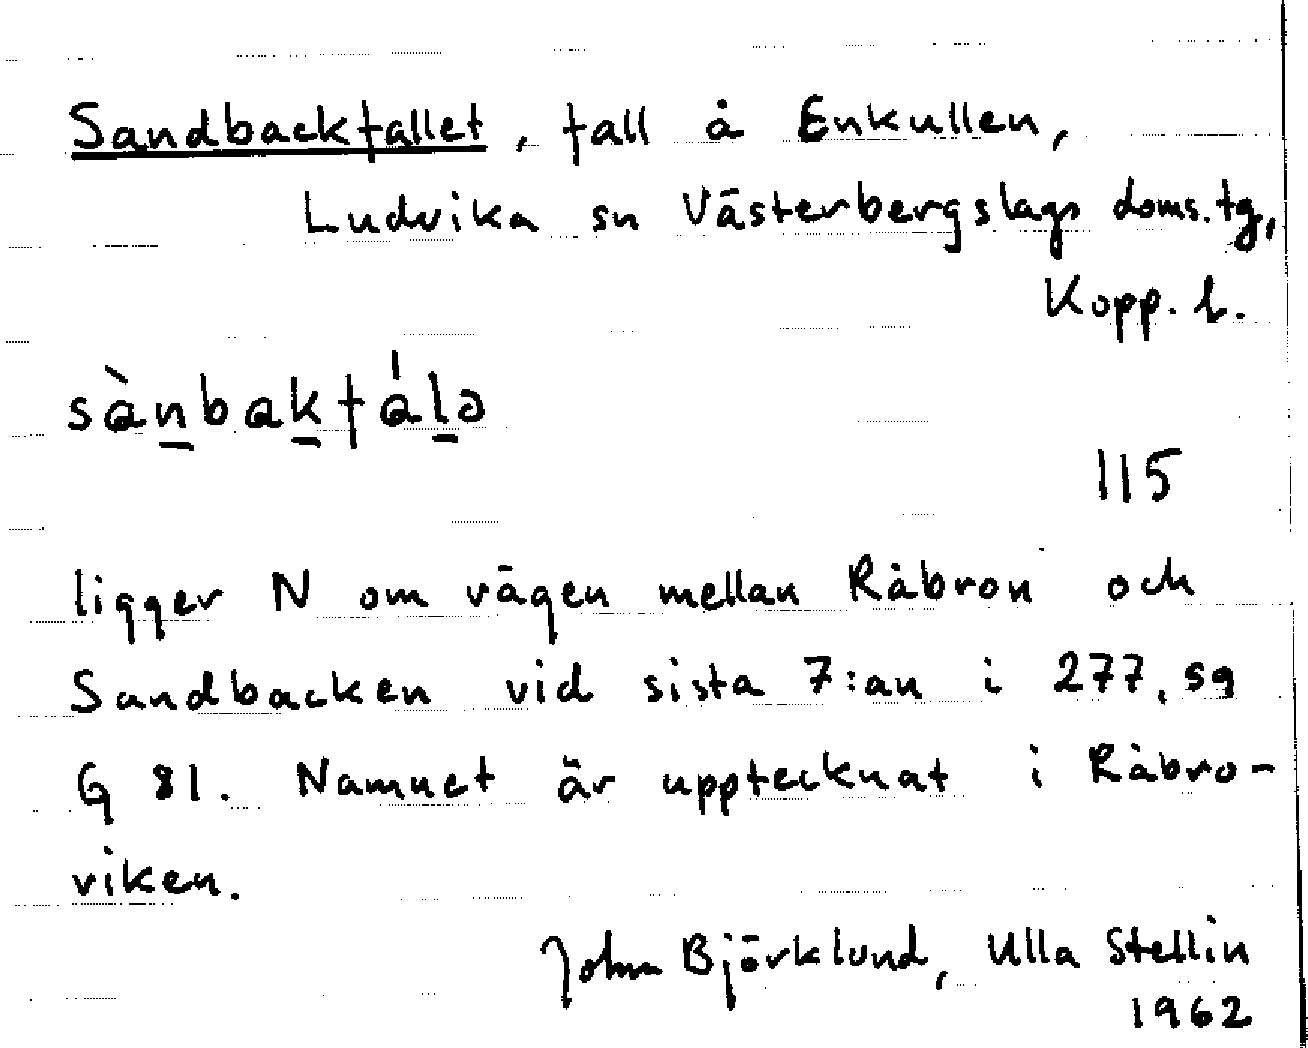 Sandbackfallet, fall å Enkullen,
Ludvika sn Västerbergslags doms.tg,
Kopp. l.
sàn̲bak̲fál̲ə
115
ligger N om vägen mellan Råbron och
Sandbacken vid sista 7:an i 277,59
G 81. Namnet är upptecknat i Råbro-
viken.
John Björklund, Ulla Stellin
1962